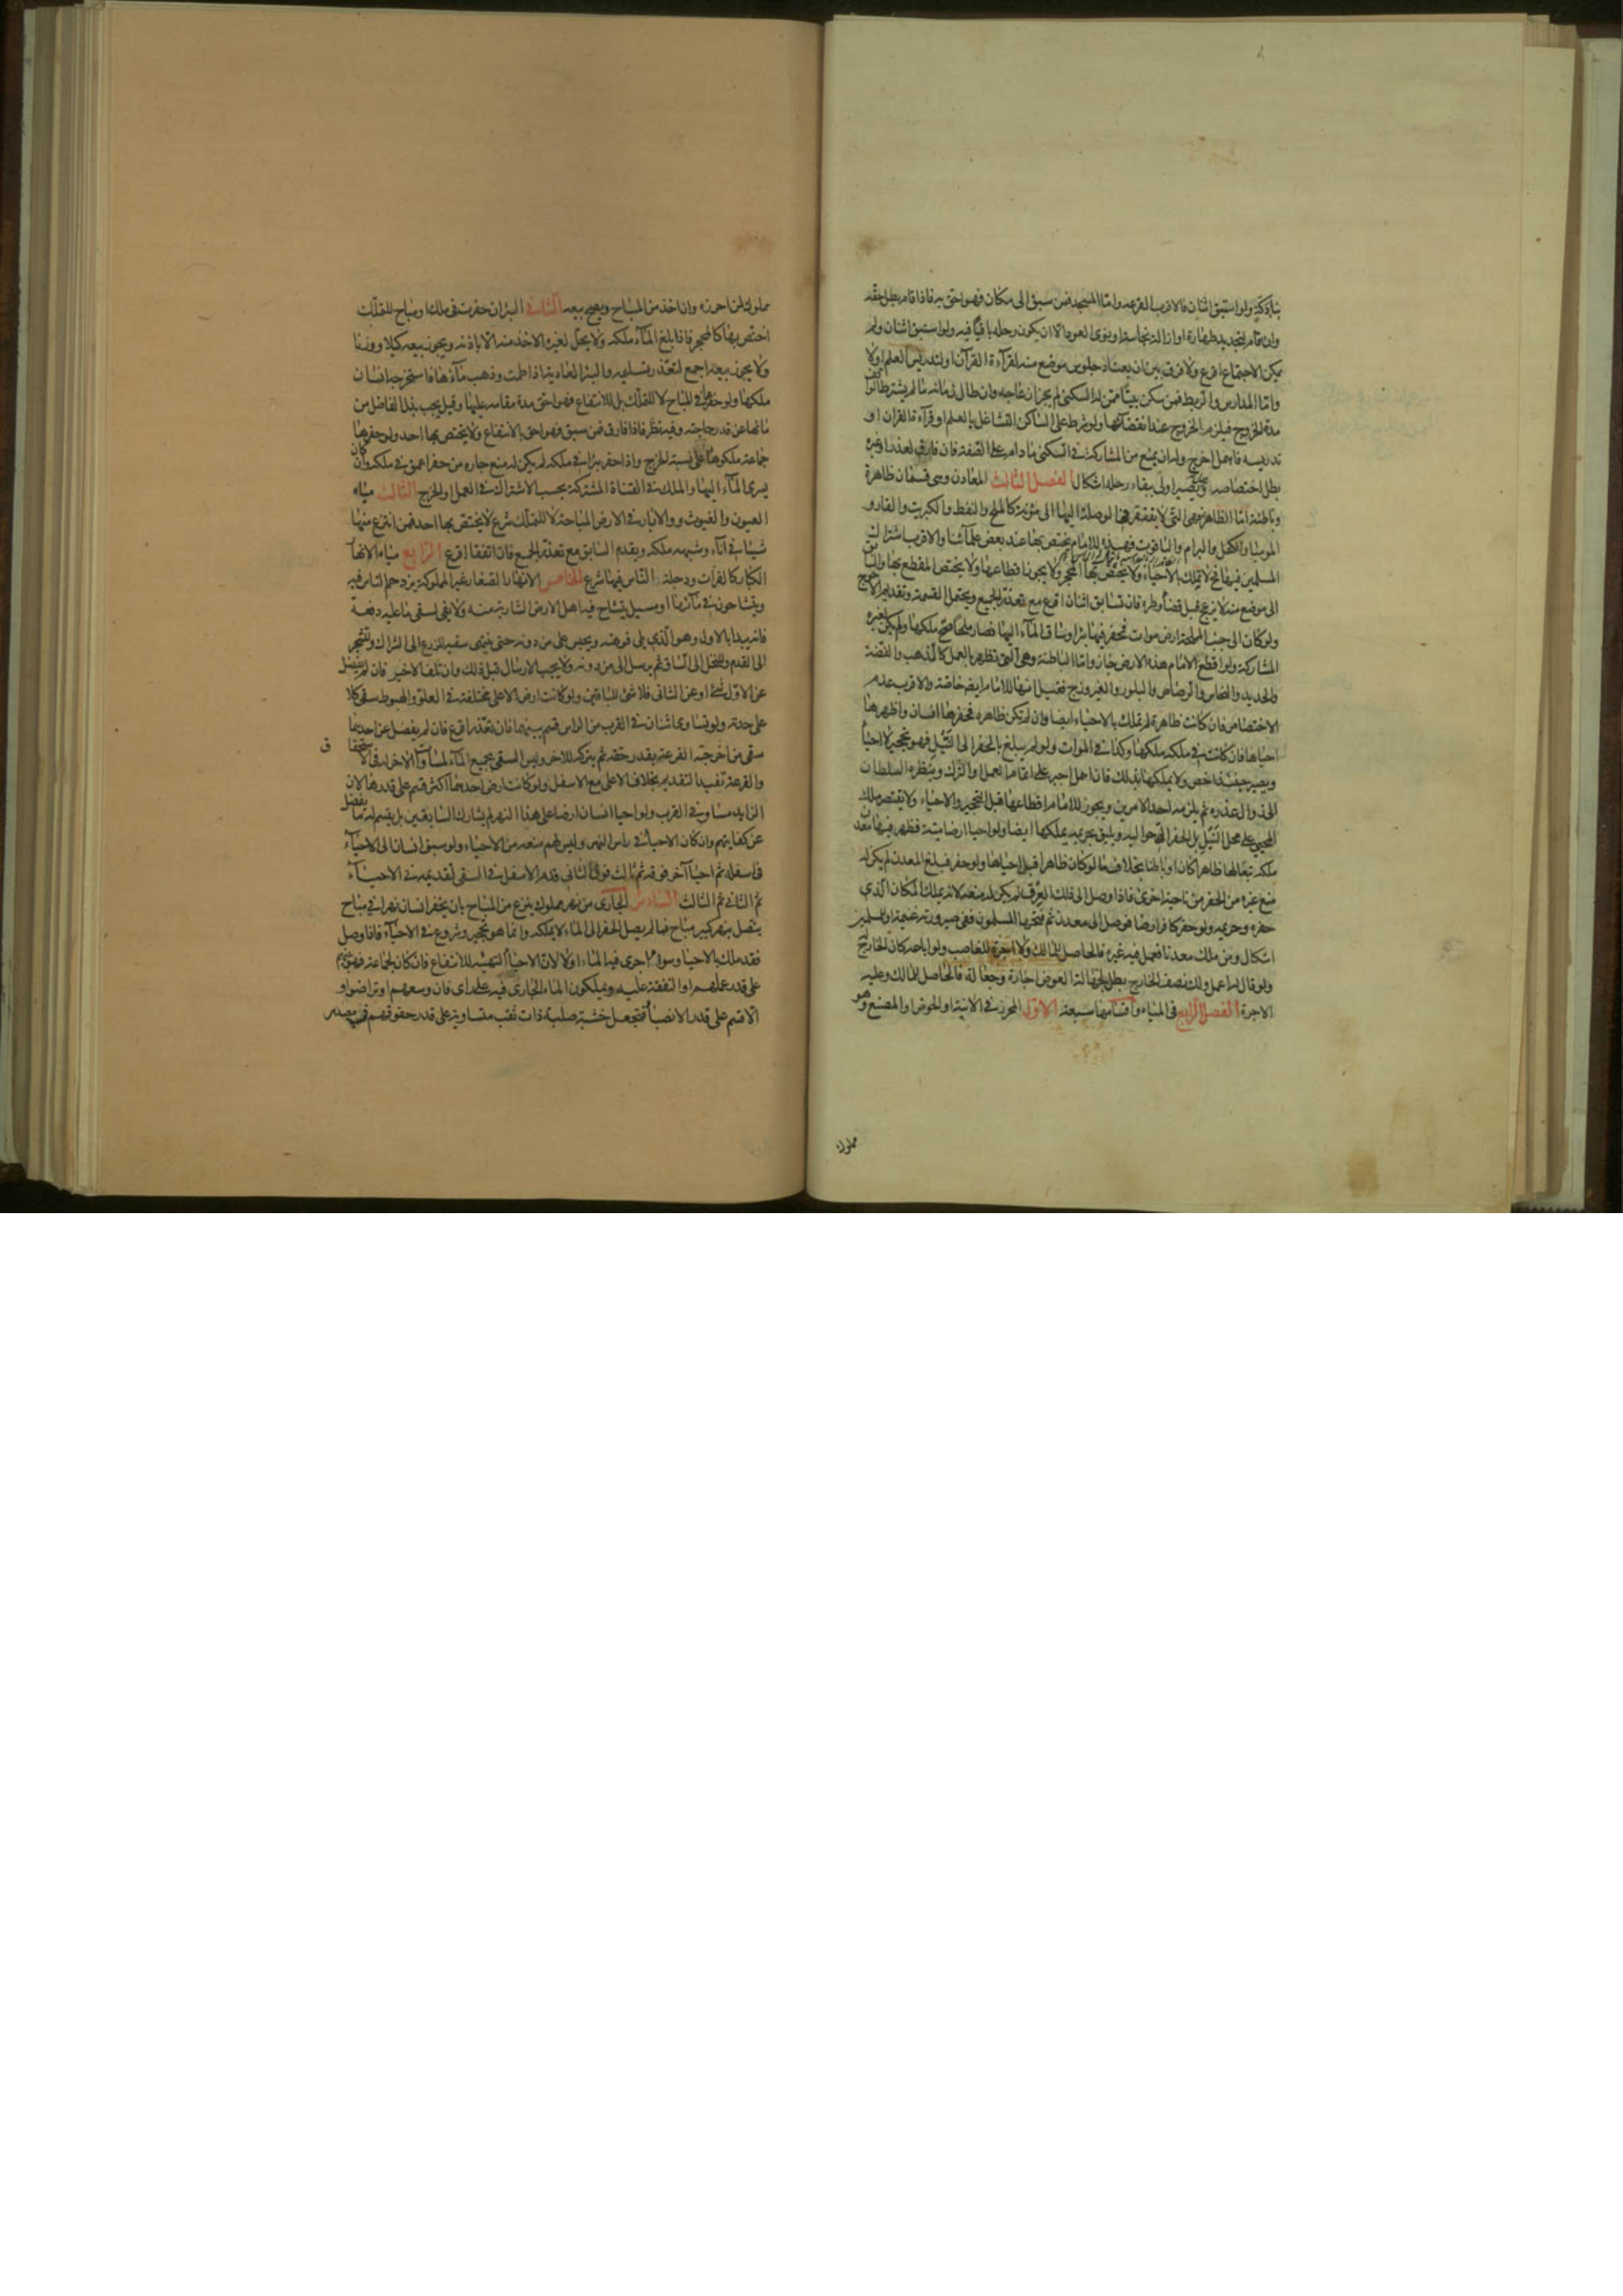 بتأذّيه ولو استبق اثنان فالاقرب القرعه وامّا المسجد فمن سبق الى مكان فهو احق به فاذا قام بطل حقّه
وان قام لتجديد طهارة او ازالة نجاسة او ينوى العود الّا ان يكون رحله باقيًا فيه ولو استبق اثنان ولم
يمكن الاجتماع اقرع ولا فرق بين ان يعتاد جلوس موضع منه لقرآءة القرآن او لتدريس العلم او لا
وامّا المدارس والرّبط فمن سكن بيتًا ممّن له السكنى لم يجز ازعاجه وان طال زمانه ما لم يشترط الواقف
مدة الخروج فيلزم الخروج عند انقضائها ولو شرط على السّاكن التشاغل بالعلم او قرآءة القران او
تدريسه فاهمل اخرج وله ان يمنع من المشاركة في السكنى ما دام على الصّفة فان فارق لعذر او غيره
بطل اختصاصه وفي اولى ببقاء رحله اشكال الفصل الثّالث المعادن وهي قسمان ظاهرة
وباطنة امّا الظاهرة وهي التى لا يفتقر في الوصلة اليها الى مؤنة كالملح والنفط والكبريت والقار و
الموميا والكحل والبرام والياقوت فهذه للامام يختص بها عند بعض علمآئنا والاقرب اشتراك
المسلمين فيها فح لا تملك بالاحياء ولا يختص بها المحجر ولا يجوز اقطاعها ولا يختص المقطع بها والسّابق
الى موضع منه لا يزعج قبل قضاء وطره فان تسابق اثنان اقرع مع تعذّر الجمع ويحتمل القسمة وتقديم الاحوج
ولو كان الى جنب المملحة ارض موات فحفر فيها بئرا وساق المآء اليها فصار ملحا صحّ ملكها ولم يكن لغيره
المشاركة ولو اقطع الامام هذه الارض جاز وامّا الباطنة وهى التى تظهر بالعمل كالذهب والفضة
والحديد والنحاس والرّصاص والبلور والفيروزج فقيل انها للامام ايض خاصّة والاقرب عدم
الاختصاص فان كانت ظاهرة لم تملك بالاحياء ايضا وان لم تكن ظاهرة فحفرها انسان واظهرها
احياها فان كانت في ملكه ملكها وكذا في الموات ولو لم يبلغ بالحفر الى النّيل فهو تحجير لا احياء
ويصير حينئذ اخص ولا يملكها بذلك فان اهمل اجبر على اتمام العمل او الترك وينظره السلطان
الى زوال عذره ثم يلزمه احد الامرين ويجوز للامام اقطاعها قبل التحجير والاحياء ولا يقتصر ملك
المحيي على محل النّيل بل الحفر التي حواليه ويليق بحريمه يملكها ايضا ولو احيا ارضا ميتة فظهر فيها معدن
ملكه تبعًا لها ظاهرا كان او باطنا بخلاف ما لو كان ظاهرا قبل احياها ولو حفر فبلغ المعدن لم يكن له
منع غيره من الحفر من ناحية اخرى فاذا وصل الى ذلك العرق لم يكن له منعه لانه يملك المكان الذى
حفره وحريمه ولو حفر كافر ارضا فوصل الى معدن ثم فتحها المسلمون ففي صيرورته غنيمة او للمسلمين
اشكال ومن ملك معدنا فعمل فيه غيره فالحاصل للمالك ولا اجرة للغاصب ولو اباحه كان الخارج
ولو قال له اعمل ولك نصف الخارج بطل لجهالة العوض اجارة وجعالة فالحاصل للمالك وعليه
الاجرة الفصل الرّابع في المياه واقسامها سبعة الاوّل المحرز في الانية او الحوض او المصنع وهو
مملوك
مملوك لمن احرزه وان اخذ من المباح ويصح بيعه الثّاني البئر ان حفرت في ملك او مباح للتملّك
اختص بها كالمحجر فاذا بلغ المآء ملكه ولا يحلّ لغيره الاخذ منه الّا باذنه ويجوز بيعه كيلا ووزنا
ولا يجوز بيعه اجمع لتعذّر تسليمه والبئر العادية اذا طمت وذهب مآءها فاستخرجه انسان
ملكها ولو حفرها في المباح لا للتملّك بل للانتفاع فهو احق مدة مقامه عليها وقيل يجب بذل الفاضل من
مائها عن قدر حاجته وفيه نظر فاذا فارق فمن سبق فهو احق بالانتفاع ولا يختص بها احد ولو حفرها
جماعة ملكوها على نسبة الخرج واذا حفر بئرا في ملكه لم يكن له منع جاره من حفر اعمق في ملكه وان كان
يسرى المآء اليها والملك في القناة المشتركة بحسب الاشتراك في العمل او الخرج الثالث مياه
العيون والغيوث والابار في الارض المباحة لا للتملّك شرع لا يختص بها احد فمن انتزع منها
شيئا في انآء وشبهه ملكه ويقدم السابق مع تعذّر الجمع فان اتفقا اقرع الرّابع مياه الانهار
الكبار كالفرات ودجلة الناس فيها شرع الخامس الانهار الصغار غير المملوكة يزدحم الناس فيه
ويتشاحون في مآئها او مسيل يتشاح فيه اهل الارض الشاربة منه ولا يفى لسقى ما عليه دفعة
فانه يبدا بالاول وهو الّذى يلى فوهته ويحبس على من دونه حتى ينتهى سقيه للزرع الى الشراك وللشجر
الى القدم وللنخل الى السّاق ثم يرسل الى من دونه ولا يجب الارسال قبل ذلك وان تلف الاخير فان لم يفضل
عن الاوّل شئ او عن الثانى فلا شئ للباقين ولو كانت ارض الاعلى مختلفة في العلو والهبوط سقى كلا
على حدته ولو تساوى اثنان في القرب من الراس قسم بينهما فان تعذّر اقرع فان لم يفضل عن احدهما
سقى من اخرجته القرعة بقدر حقه ثم يتركه للاخر وليس له السقى بجميع المآء لمساوآة الاخر له في الاستحقاق
والقرعة تفيد التقديم بخلاف الاعلى مع الاسفل ولو كانت ارض احدهما اكثر قسم على قدرها لان
الزايد مساو في القرب ولو احيا انسان ارضا على هذا النهر لم يشارك السّابقين بل يقسم له ما يفضل
عن كفايتهم وان كان الاحياء في راس النهر وليس لهم منعه من الاحياء ولو سبق انسان الى الاحيآء
في اسفله ثم احيا آخر فوقه ثم ثالث فوق الثانى قدم الاسفل في السقى لتقديمه في الاحيآء
ثمّ الثانى ثمّ الثالث السّادس الجارى من نهر مملوك ينزع من المباح بان يحفر انسان نهرا في مباح
يتّصل بنهر كبير مباح فما لم يصل الحفر الى الماء لا يملكه وانما هو تحجير وشروع في الاحيآء فاذا وصل
فقد ملك بالاحيا وسوآء اجرى فيه المآء او لا لان الاحياء التهيئة للانتفاع فان كان لجماعة فهو بينهم
على قدر عملهم او النفقة عليه ويملكون المآء الجارى فيه على راى فان وسعهم او تراضوا و
الّا قسم على قدر الانصباء فتجعل خشبة صلبة ذات ثقب متساوية على قدر حقوقهم في مصدر